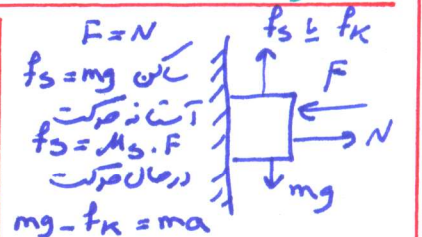 F = N
fs = mg ساکن
آستانه حرکت
fs = μs . F
درحال حرکت
mg - fk = ma
fs یا fk
F
N
mg